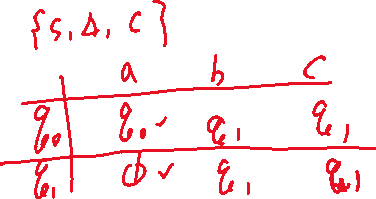 {s, Δ, c}
a b c
q₀ q₀ ✓ q₁ q₁
q₁ ϕ ✓ q₁ q₁